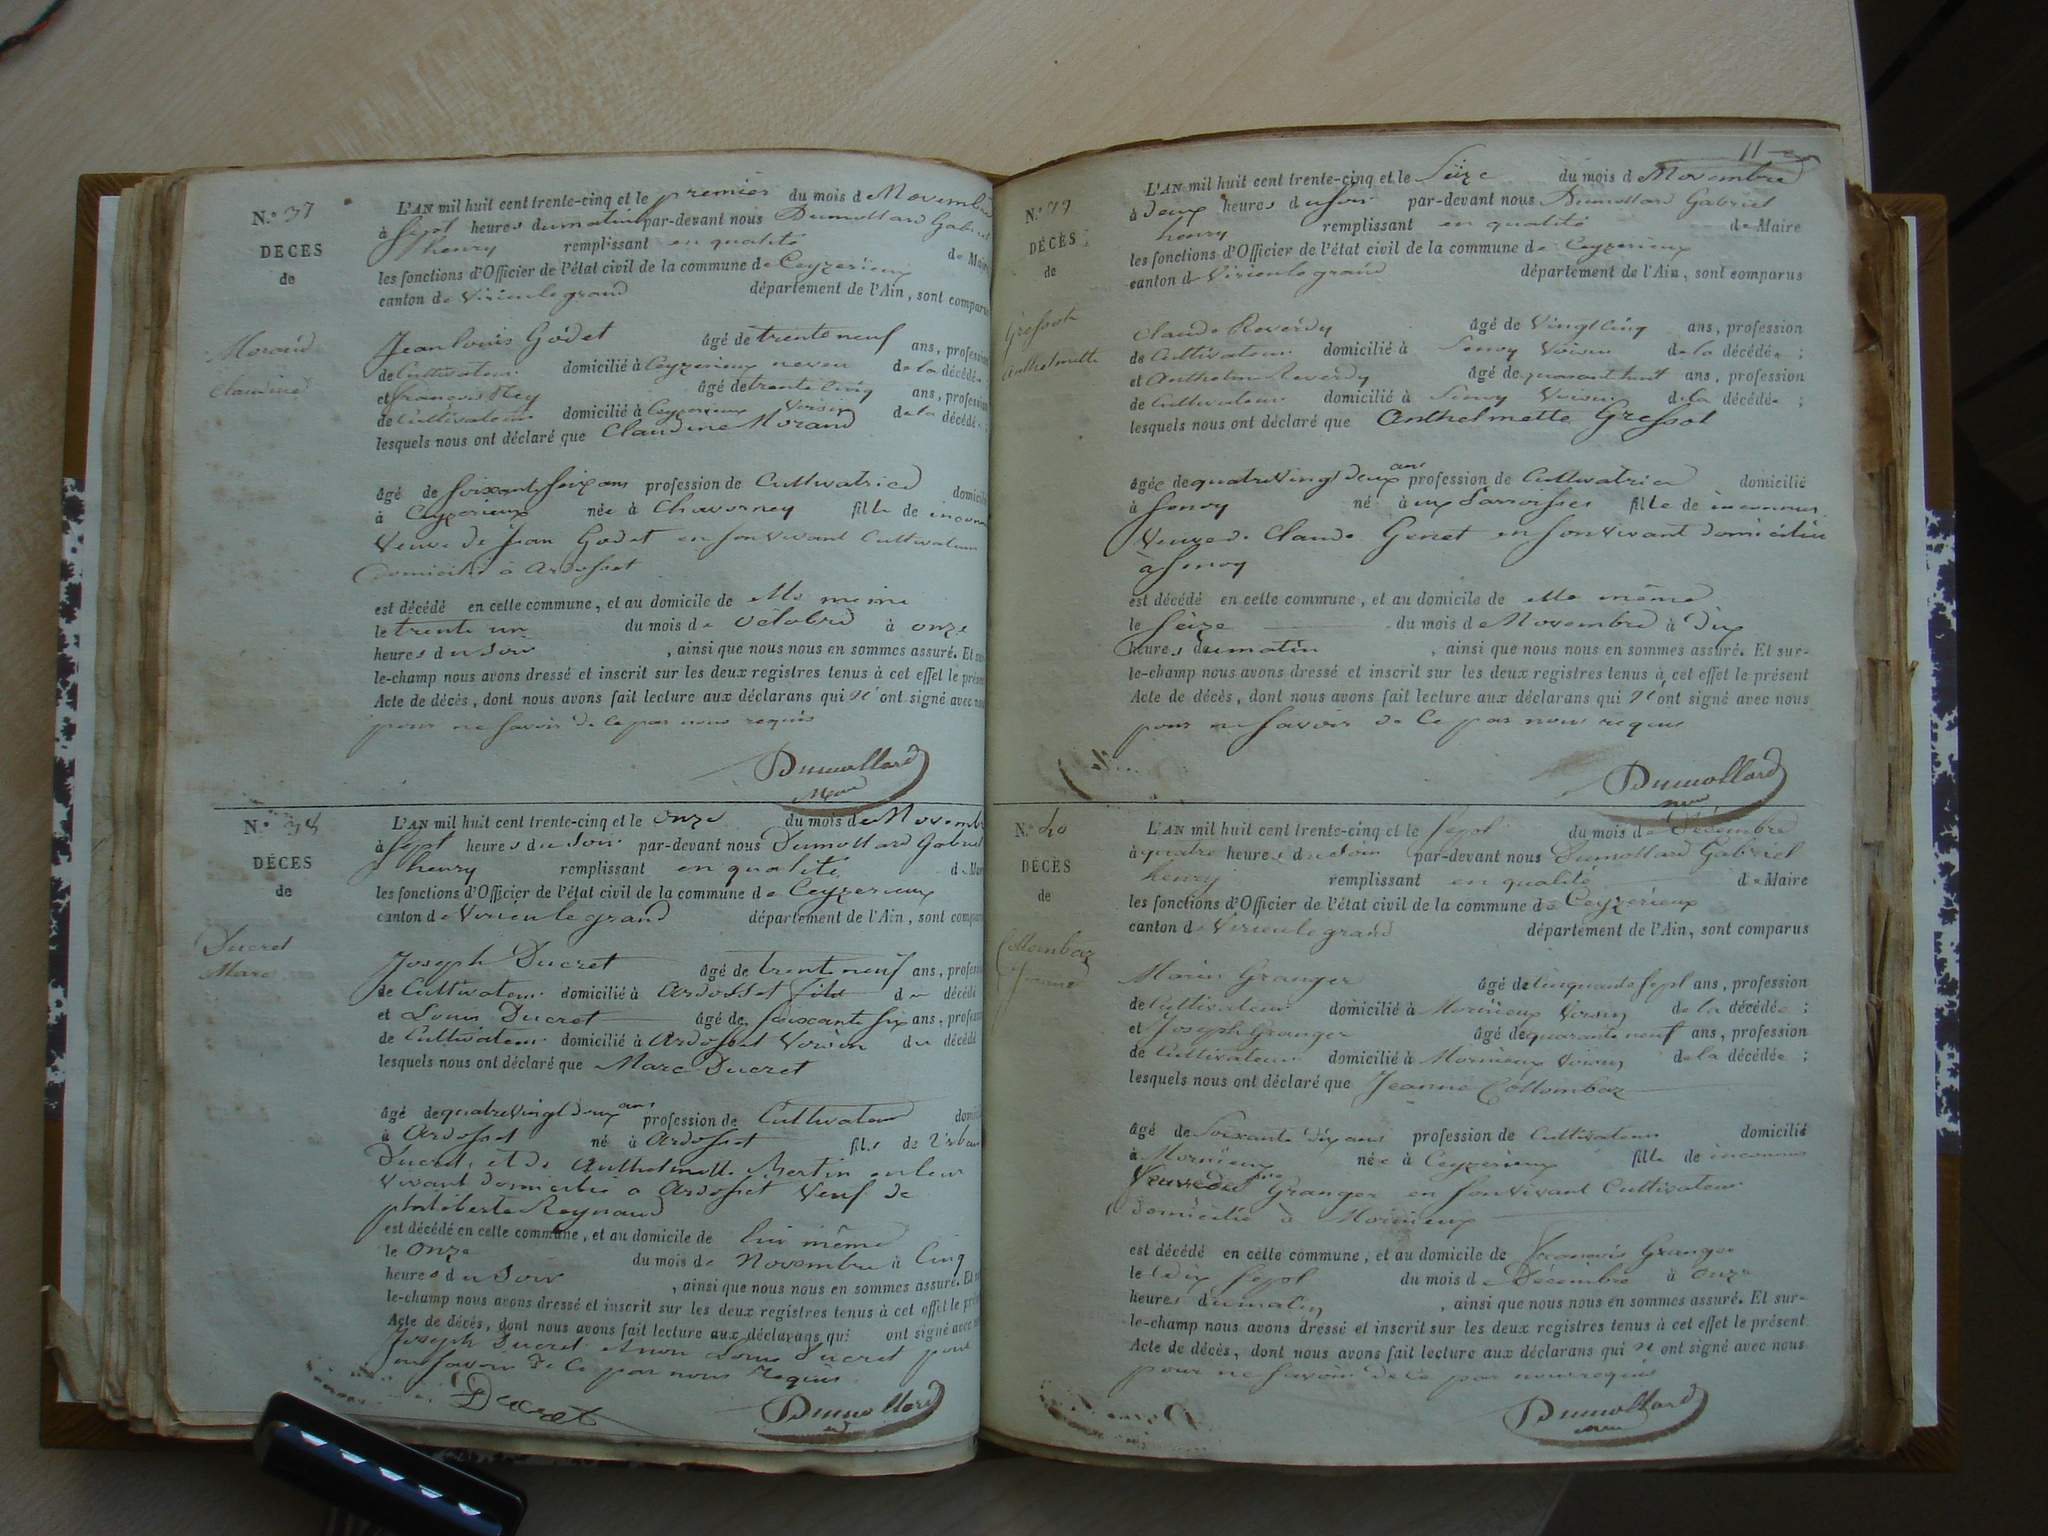 N.º 37
DÉCES
de
Morand
Claudine
L'AN mil huit cent trente-cinq et le premier du mois de Novembre
à sept heures du matin par-devant nous Dumollard Gabriel
henry remplissant en qualité de Maire
les fonctions d'Officier de l'état civil de la commune de Ceyzerieux
canton de Virieu le grand département de l'Ain, sont comparus
Jean louis Godet âgé de trente neuf ans, profession
de Cultivateur domicilié à Ceyzerieux neveu de la décédée
et françois Rey âgé de trente cinq ans, profession
de Cultivateur domicilié à Ceyzerieux Voisin de la décédée
lesquels nous ont déclaré que Claudine Morand
âgé de soixante six ans profession de Cultivatrice domicilié
à Ceyzerieux née à Chavornay fille de inconnu
Veuve de jean Godet en son vivant Cultivateur
domicilié à Ardosset
est décédé en cette commune, et au domicile de elle même
le trente un du mois de octobre à onze
heures du soir, ainsi que nous nous en sommes assuré. Et sur-
le-champ nous avons dressé et inscrit sur les deux registres tenus à cet effet le présent
Acte de décès, dont nous avons fait lecture aux déclarans qui n'ont signé avec nous
pour ne savoir de ce par nous requis
Dumollard
N.º 38
DÉCES
de
Ducret
Marc
L'AN mil huit cent trente-cinq et le onze du mois de Novembre
à sept heures du soir par-devant nous Dumollard Gabriel
henry remplissant en qualité de Maire
les fonctions d'Officier de l'état civil de la commune de Ceyzerieux
canton de Virieu le grand département de l'Ain, sont comparus
Joseph Ducret âgé de trente neuf ans, profession
de Cultivateur domicilié à Ardosset fils du décédé
et Louis Ducret âgé de soixante six ans, profession
de Cultivateur domicilié à Ardosset Voisin du décédé
lesquels nous ont déclaré que Marc Ducret
âgé de quatre Vingt deux ans profession de Cultivateur domicilié
à Ardosset né à Ardosset fils de Urbain
Ducret et de Anthelmette Martin en leur
vivant domiciliés à Ardosset Veuf de
philiberte Reynaud
est décédé en cette commune, et au domicile de lui même
le onze du mois de Novembre à Cinq
heures du soir, ainsi que nous nous en sommes assuré. Et sur-
le-champ nous avons dressé et inscrit sur les deux registres tenus à cet effet le présent
Acte de décès, dont nous avons fait lecture aux déclarans qui ont signé avec nous
Joseph Ducret et non Louis Ducret pour
ne savoir de ce par nous Requis
Ducret Dumollard
11
N.º 39
DÉCÈS
de
Gressot
Anthelmette
L'AN mil huit cent trente-cinq et le Seize du mois de Novembre
à deux heures du soir par-devant nous Dumollard Gabriel
henry remplissant en qualité de Maire
les fonctions d'Officier de l'état civil de la commune de Ceyzerieux
canton de Virieu le grand département de l'Ain, sont comparus
Claude Reverdy âgé de Vingt Cinq ans, profession
de Cultivateur domicilié à Senoy Voisin de la décédée ;
et Anthelme Reverdy âgé de quarant huit ans, profession
de Cultivateur domicilié à Senoy Voisin de la décédée ;
lesquels nous ont déclaré que Anthelmette Gressot
âgée de quatre Vingt deux ans profession de Cultivatrice domicilié
à Senoy né à aux Parroisses fille de inconnus
Veuve de Claude Genet en son vivant domicilié
à Senoy
est décédé en cette commune, et au domicile de elle même
le seize du mois de Novembre à Dix
heures du matin, ainsi que nous nous en sommes assuré. Et sur-
le-champ nous avons dressé et inscrit sur les deux registres tenus à cet effet le présent
Acte de décès, dont nous avons fait lecture aux déclarans qui n'ont signé avec nous
pour ne savoir de ce par nous requis
Dumollard
N.º 40
DÉCÈS
de
Collombaz
Jeanne
L'AN mil huit cent trente-cinq et le sept du mois de Décembre
à quatre heures du soir par-devant nous Dumollard Gabriel
henry remplissant en qualité de Maire
les fonctions d'Officier de l'état civil de la commune de Ceyzérieux
canton de Virieu le grand département de l'Ain, sont comparus
Marin Granger âgé de cinquante sept ans, profession
de Cultivateur domicilié à Mornieux Voisin de la décédée ;
et Joseph Granger âgé de quarante neuf ans, profession
de Cultivateur domicilié à Mornieux Voisin de la décédée ;
lesquels nous ont déclaré que Jeanne Collombaz
âgé de Soixante Dix ans profession de Cultivateur domicilié
à Mornieux née à Ceyzerieux fille de inconnus
Veuve de Granger en son vivant Cultivateur
domicilié à Mornieux
est décédé en cette commune, et au domicile de francois Granger
le Dix Sept du mois de Décembre à onze
heures du matin, ainsi que nous nous en sommes assuré. Et sur-
le-champ nous avons dressé et inscrit sur les deux registres tenus à cet effet le présent
Acte de décès, dont nous avons fait lecture aux déclarans qui n'ont signé avec nous
pour ne savoir de ce par nous requis
Dumollard